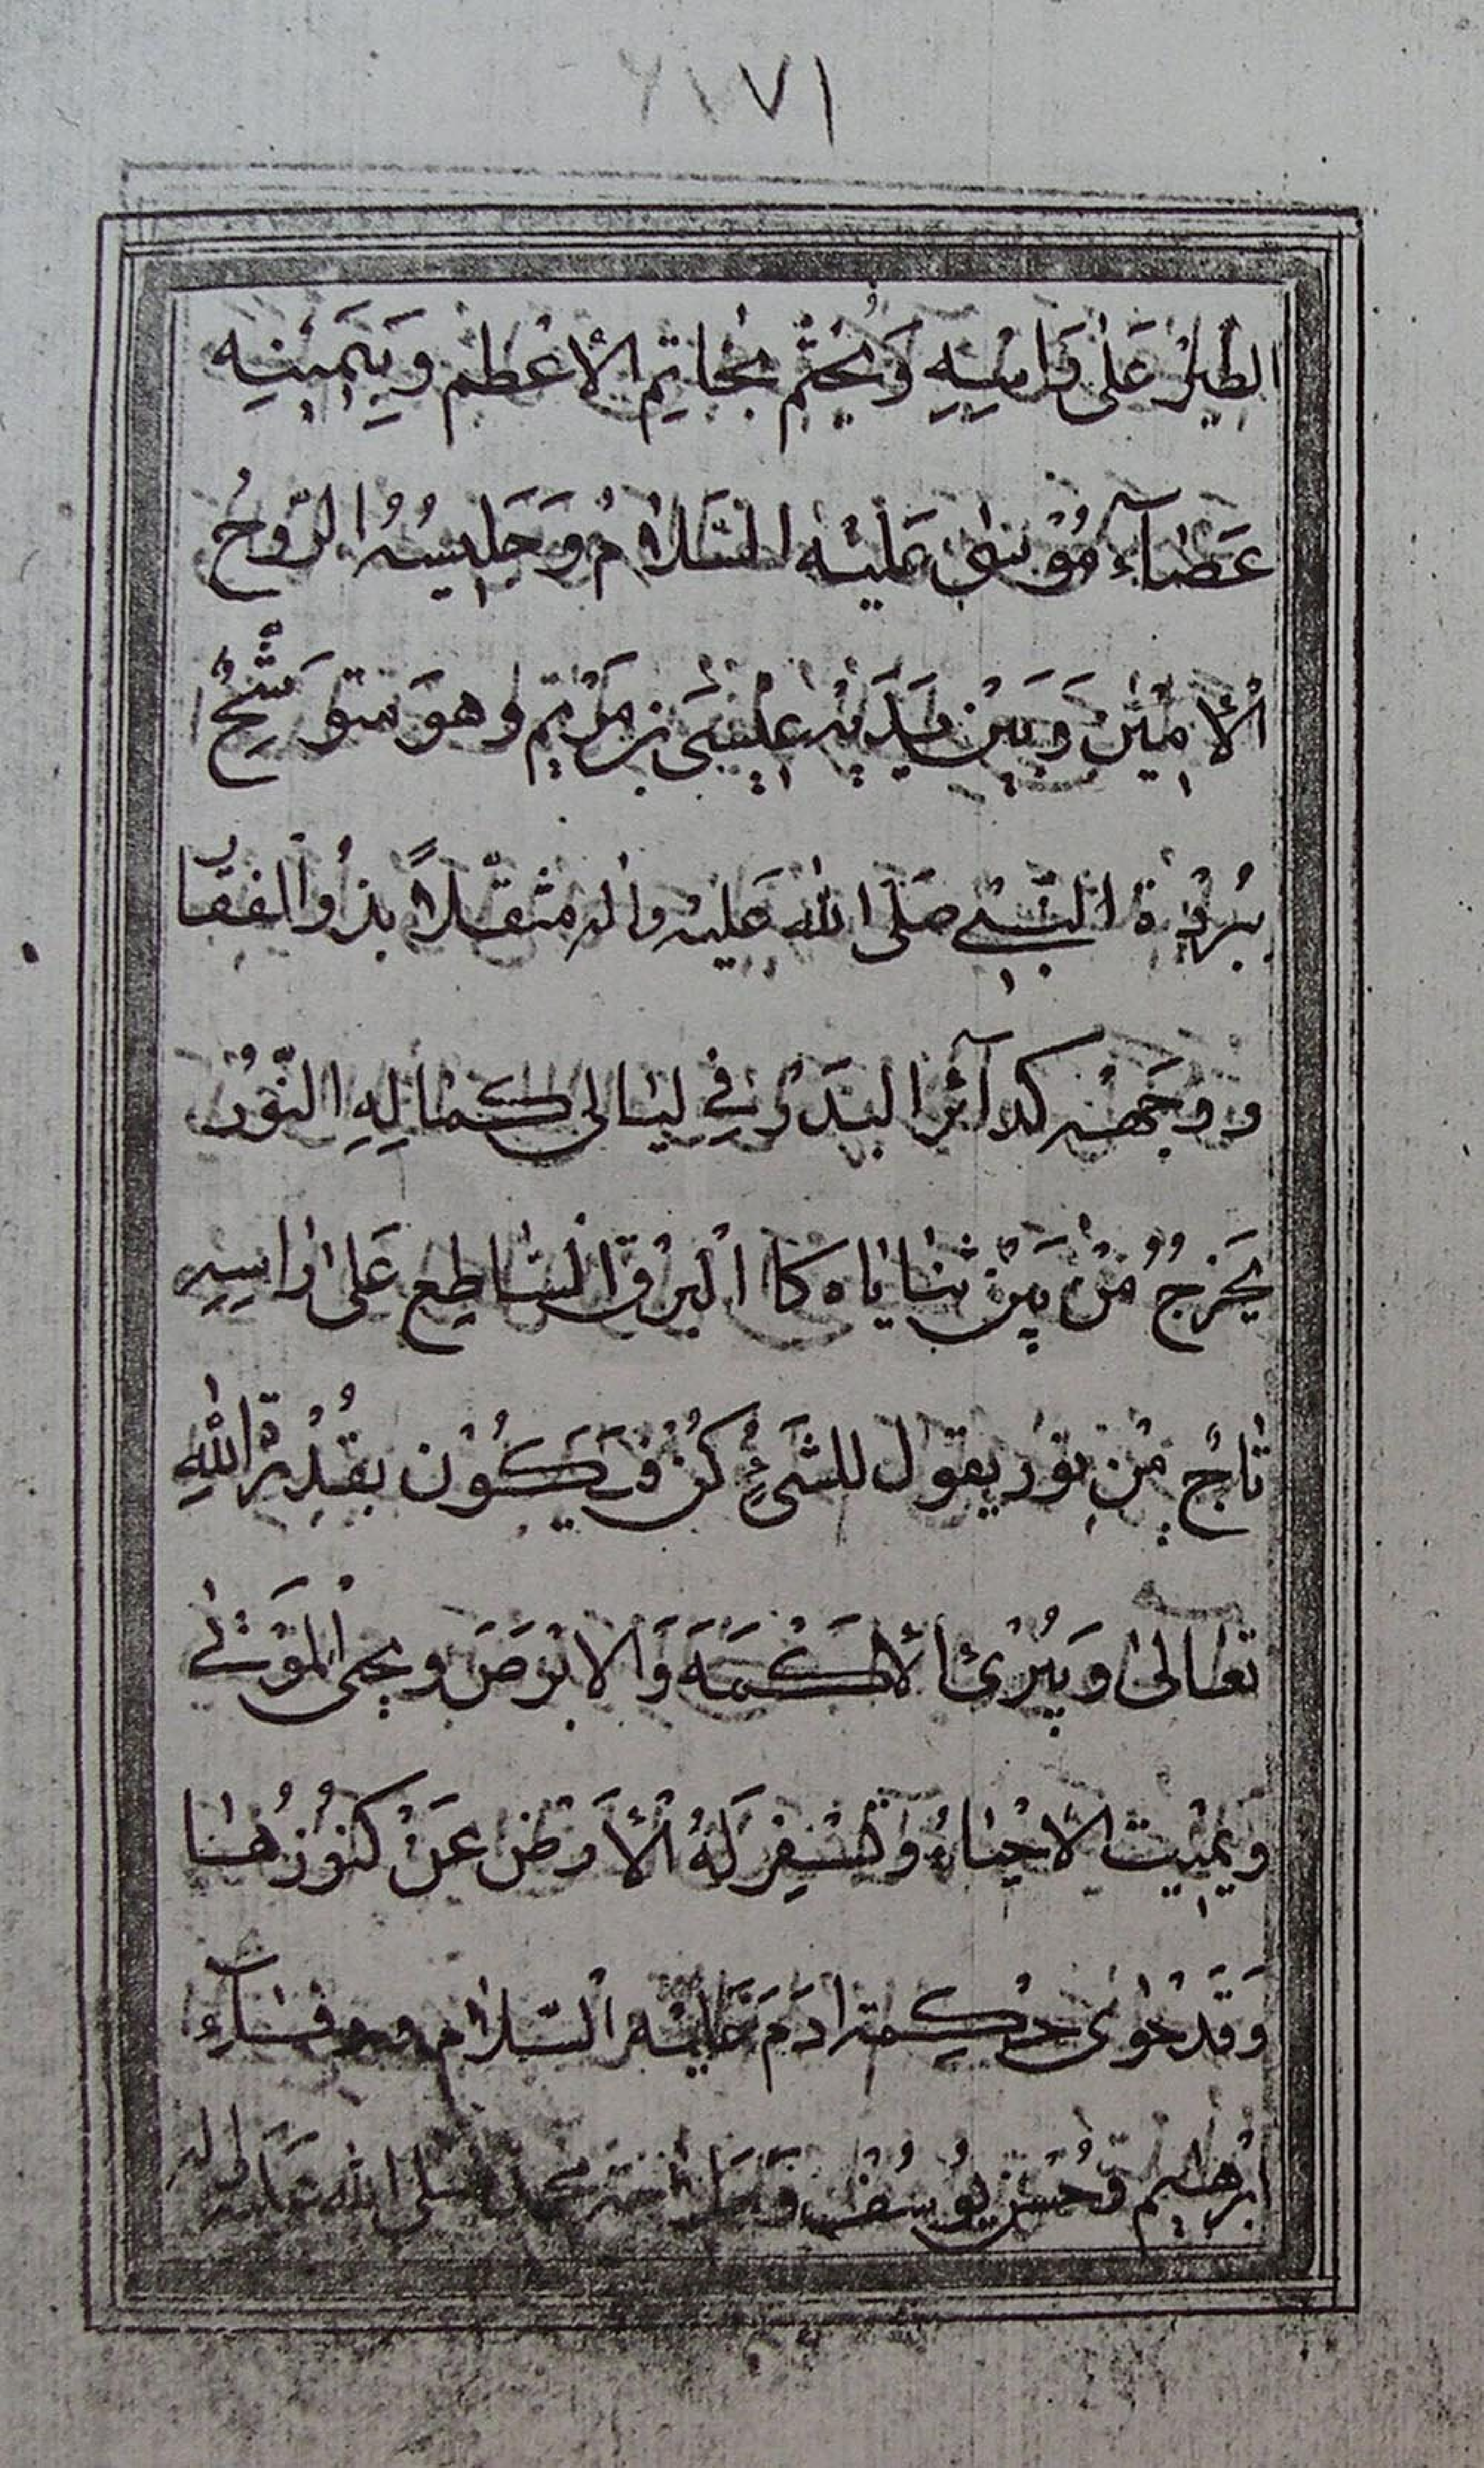 ٧١
الطير على راسِهِ وَيختم بخاتِم الاعظم وبِيَمينِه
عَصَآءِ مُوْسٰى عَلَيْه السَّلَامُ وَجَلِيسُهُ الرّوحُ
الْاَمِيْن وَبَيْن يَدَيْه عِيسَى بن مَرْيَم وهوَ متوَشِّحٌ
ببُرْدَة النّبىِ صَلَى الله عَليه واله متقلّداً بذُو الفقار
ووَجَهْه كدآئرالبَدَرْ فِي ليالى كمالِهِ النّوْرُ
يَخرجُ مُنْ بَيْن ثنايَاه كا البَرْق السّاطِع عَلى رَاسِهِ
تاجٌ مِنْ نوْر يقول للشَىءٍ كُنْ فَيَكُون بقُدْرَة اللهِ
تعالىٰ وَيُبْرئ الْاَكْمَهَ وَالابْرَصَ ويحى الْمَوْتىٰ
وَيمِيْت الاحْيَاءُ وَتُسْفِر لَهُ الْاَرْض عَنْ كنُوْزُهٰا
وَقَدْ حَوٰى حِكمة ادَمَ عَلَيْه السّلام ووفآءِ
ابْرٰهِيم وَحُسْن يُوسُف محمد صلى الله عليه واله